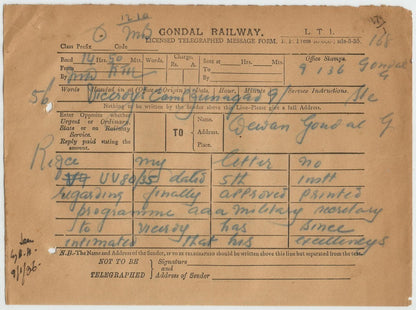 1210
GONDAL RAILWAY.
L. T. 1.
LICENSED TELEGRAPHED MESSAGE FORM.
168
Class Prefix Code
Recd. 14 Hrs. 50 Mts. Words. Charge. Rs. A. Sent at Hrs. Mts. Office Stamps.
From
By To By 9 1 36 Gondal G
56 Words Handed in at (Office of Origin) Date Hour Minutes Service Instructions. Ste
Viceroys Camp Junagad 9
Nothing to be written above this Line-Please give a full Address.
Enter Opposite whether Urgent or Ordinary. State or on Railway Service. Reply paid stating the amount.
TO Name, Address, Place.
Dewan Gondal G
my letter no
UV80/35 dated 5th inst
regarding finally approved printed
programme aaa military secretary
to viceroy has since
intimated that his excellencys
N.B.-The Name and Address of the Sender, IF TO BE TELEGRAPHED should be written above this line but separated from the text.
NOT TO BE TELEGRAPHED
Signature and Address of Sender
9/1/36